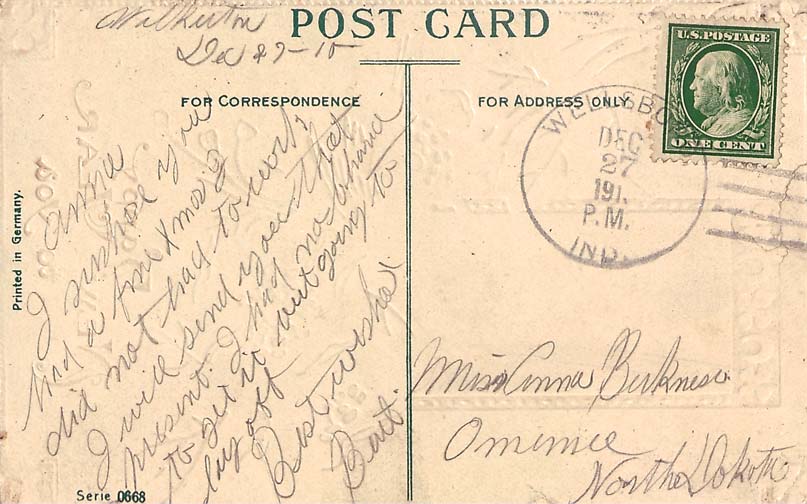 Walkerton
Dec 27-10
POST CARD
FOR CORRESPONDENCE
FOR ADDRESS ONLY
U.S. POSTAGE
ONE CENT
WELLSBORO
DEC
27
191
P.M.
IND.
Printed in Germany.
Anna
I suphose you
had a fine Xmas I
did not had to work
I will send you that
present. I had no chance
to get it but going to
lay off
Best wishes
Bert.
Miss Anna
Omemee
North Dokota
Serie 0668